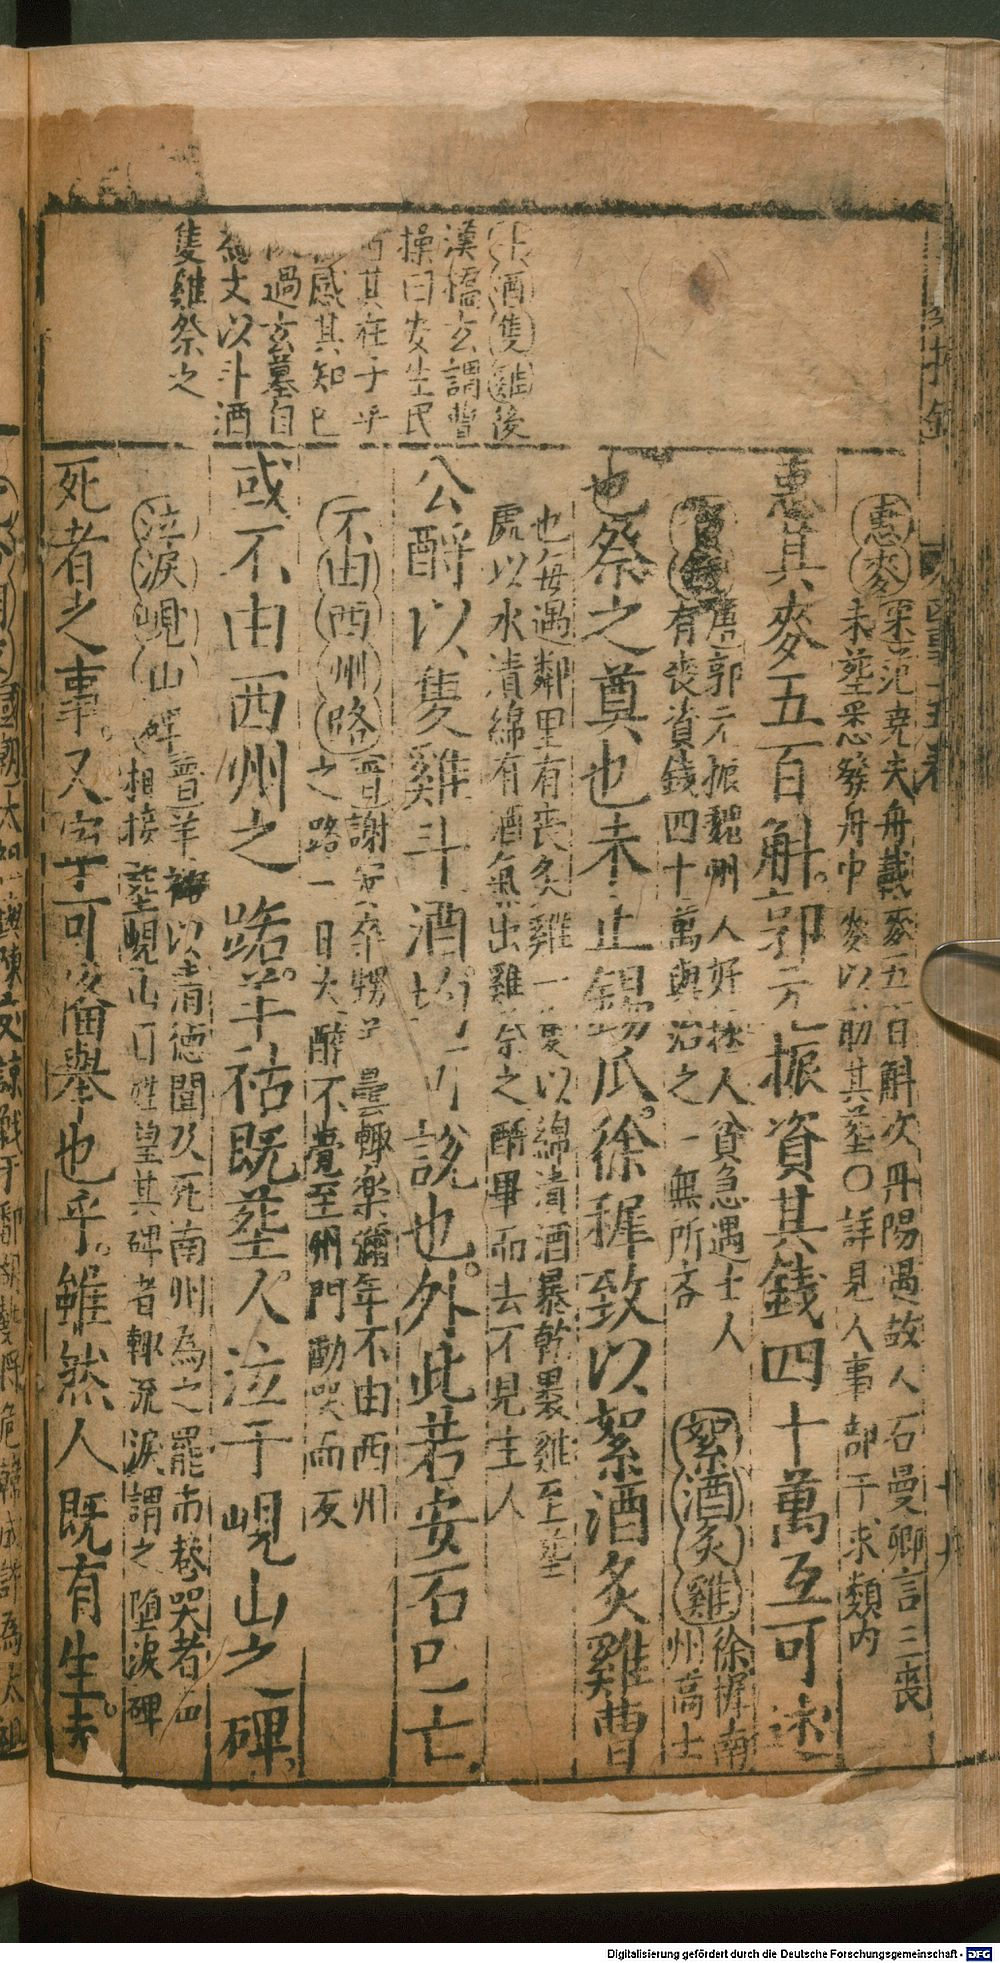 斗酒隻雞後
漢橋玄謂曹
操曰安生民
其在于乎
感其知已
過玄墓自
為文以斗酒
隻雞祭之
惠麥
宋范堯夫舟載麥五百斛次丹陽遇故人石曼卿言三喪
未塟悉發舟中麥以助其塟〇詳見人事部干求類内
惠其麥五百斛郭元振資其錢四十萬互可述
唐郭元振魏州人好拯人貧急遇士人
有喪資錢四十萬與治之一無所吝
絮酒炙雞
徐穉南
州高士
也祭之奠也未止錫瓜徐穉致以絮酒炙雞曹
也每遇鄰里有喪炙雞一隻以綿漬酒暴乾裹雞至塟
處以水漬綿有酒氣出雞祭之酹畢而去不見主人
公酹以隻雞斗酒均可談也外此若安石已亡
不由西州路
晋謝安卒甥羊曇輟楽彌年不由西州
之路一日大醉不覺至州門慟哭而反
或不由西州之路羊祜既塟人泣于峴山之碑
泣淚峴山碑
晋羊祜以清德聞及死南州為之罷市巷哭者四
相接塟峴山百姓望其碑者輙流淚謂之堕淚碑
死者之事又寧可備舉也乎雖然人既有生夫
國朝太祖與陳友諒戰于鄱湖
韓成許為太祖
Digitalisierung gefördert durch die Deutsche Forschungsgemeinschaft - DFG